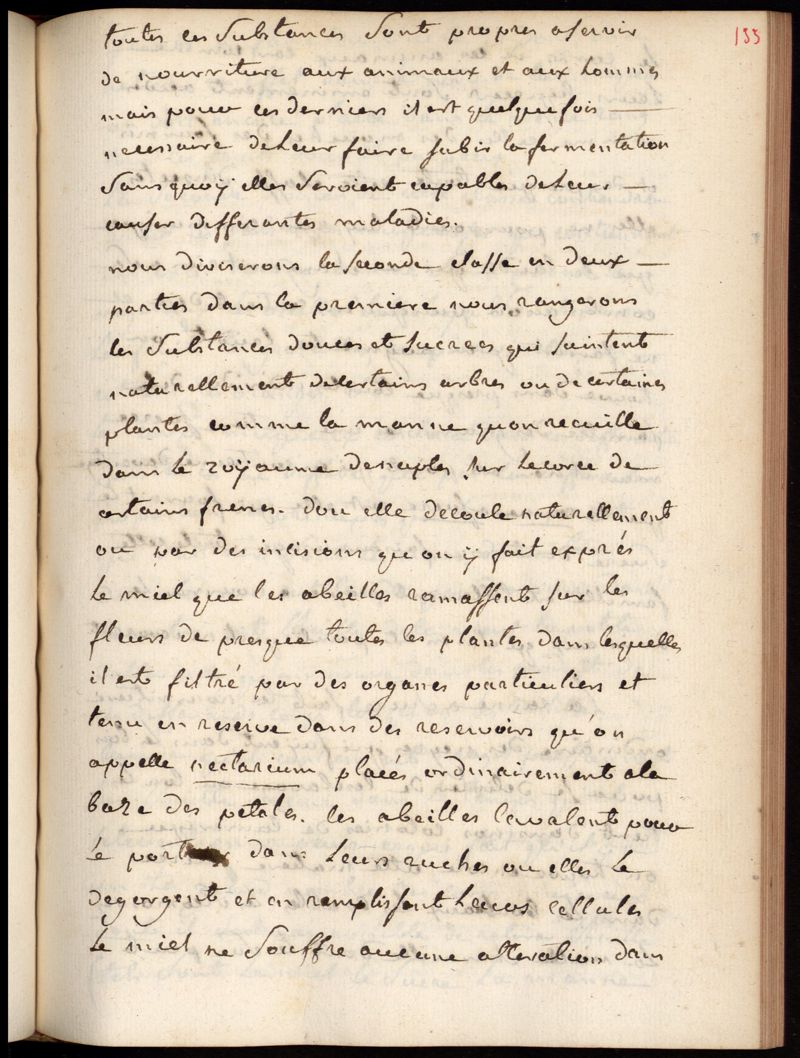 155
toutes ces Substances Sont propres aservir
de nourriture aux animaux et aux hommes
mais pour ces derniers il est quelquefois —
necessaire deLeur faire subir la fermentation
Sans quoÿ elles Seroient capables deLeur —
causer differantes maladies.
nous diviserons la seconde classe en deux —
parties dans la premiere nous rangerons
les Substances douces et sucrees qui suintent
naturellement de certains arbres ou de certaines
plantes comme la manne qu'on recuille
dans le roÿaume denaples sur Lecorce de
certains frenes. dou elle decoule naturellement
ou par des incisions qu'on ÿ fait exprés
Le miel que les abeilles ramassent sur les
fleurs de presque toutes les plantes dans lesquelles
il est filtré par des organes particuliers et
tenu en reserve dans des reservoirs qu'on
appelle nectarium placés ordinairement ala
baze des petales. les abeilles lavalent pour
Le porter dans Leurs ruches ou elles Le
degorgent et en remplissent Leurs cellules
Le miel ne Souffre aucune alteration dans